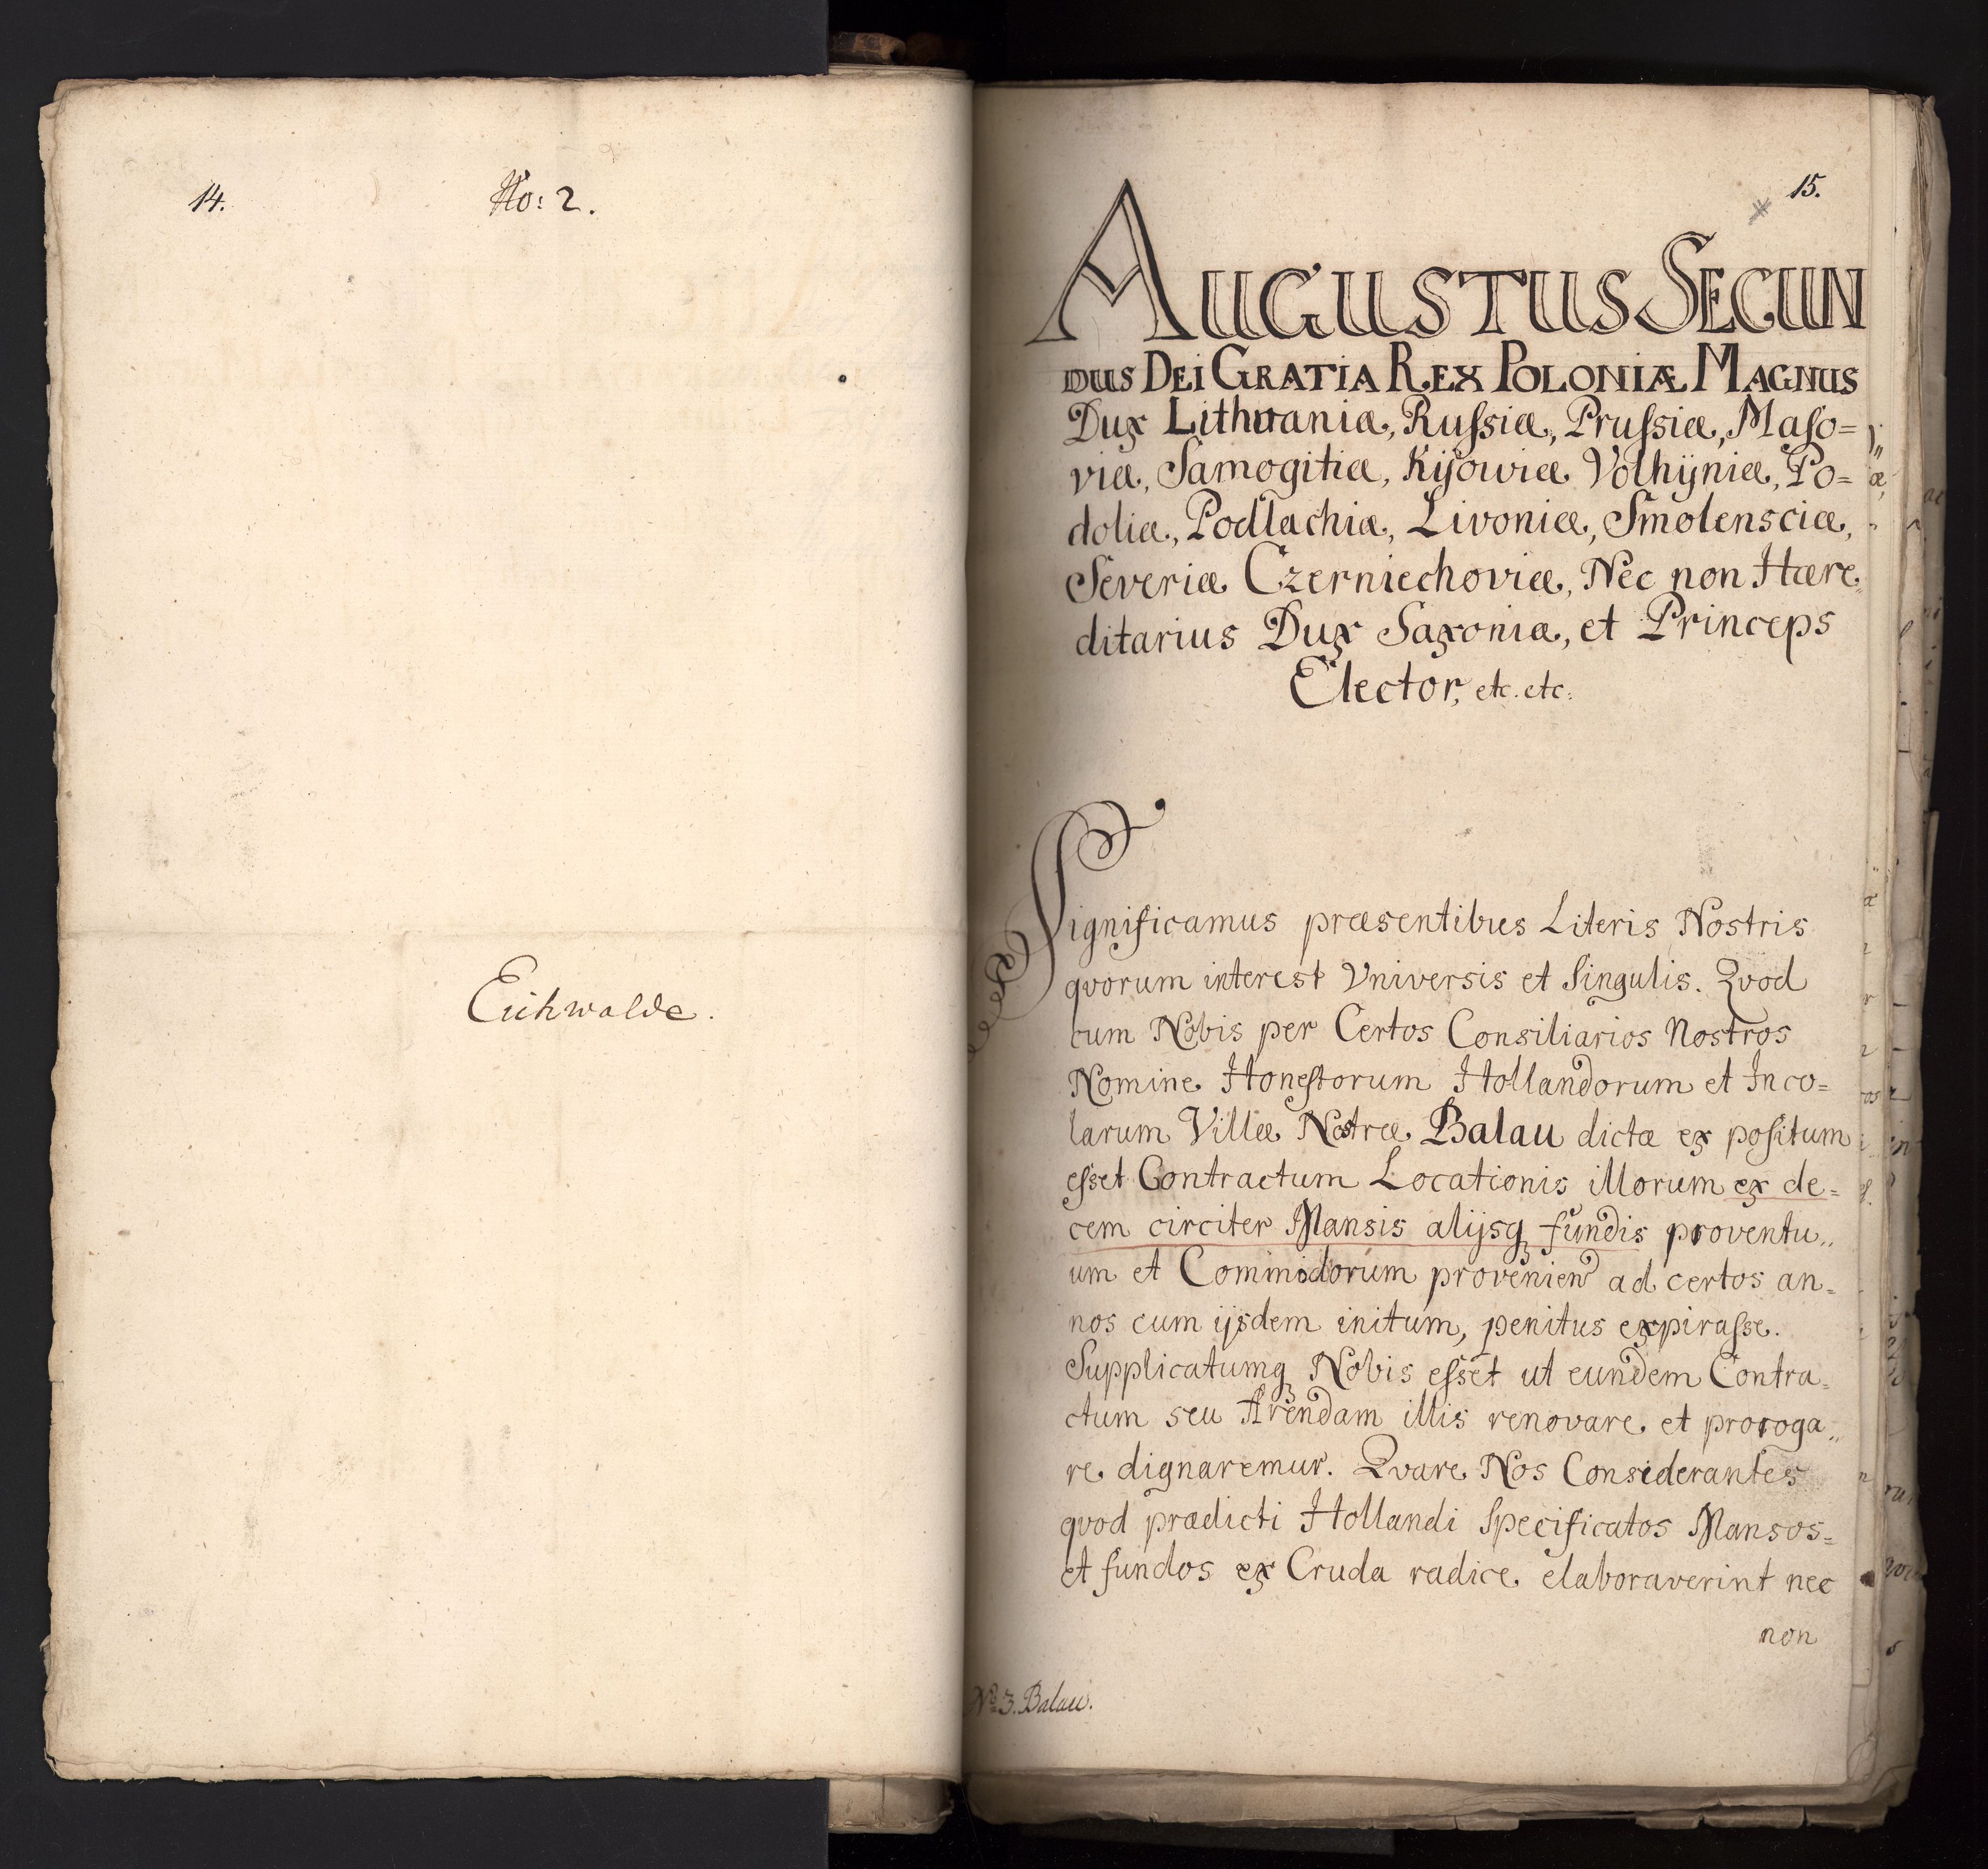 14.
No: 2.
Eichwalde.
15.
AUGUSTUS SECUN
DUS DEI GRATIA REX POLONIÆ MAGNUS
Dux Lithuaniæ, Russiæ, Prussiæ, Maso=
viæ, Samogitiæ, Kijoviæ Volhijniæ, Po=
doliæ, Podlachiæ, Livoniæ, Smolensciæ,
Severiæ Czerniechoviæ, Nec non Hære
ditarius Dux Saxoniæ, et Princeps
Elector, etc. etc:
Significamus præsentibus Literis Nostris
qvorum interest Vniversis et Singulis. Qvod
cum Nobis per Certos Consiliarios Nostros
Nomine Honestorum Hollandorum et Inco=
larum Villæ Nostræ Balau dictæ ex positum
esset Contractum Locationis illorum ex de=
cem circiter Mansis alijsq fundis proventu„
um et Commodorum provenien ad certos an=
nos cum ijsdem initum, penitus expirasse.
Supplicatumq Nobis esset ut eundem Contra=
ctum seu Arendam illis renovare et proroga„
re dignaremur. Qvare Nos Considerantes
qvod prædicti Hollandi Specificatos Mansos=
et fundos ex Cruda radice elaboraverint nec
non
No 3. Balau.